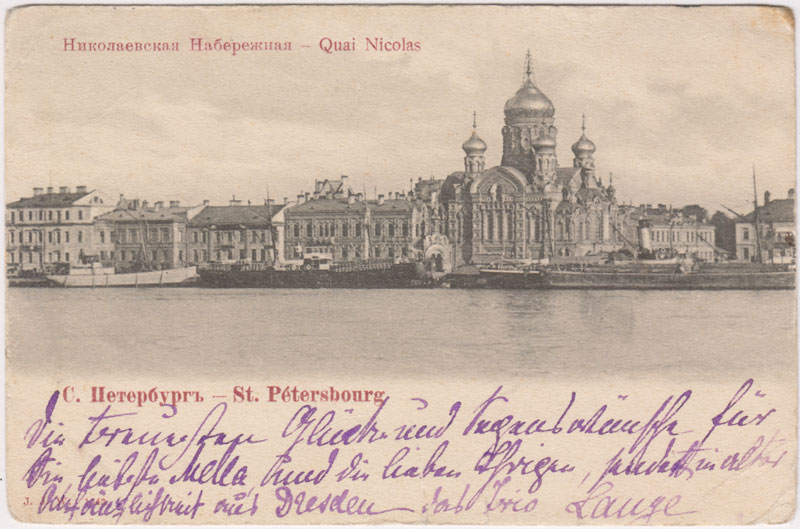 Николаевская Набережная – Quai Nicolas
С. Петербургъ – St. Pétersbourg
Die treuesten Glück- und Segenswünsche für
Sie, liebste Mella und die lieben Ihrigen, sendet in alter
Anhänglichkeit aus Dresden – das Trio Lange